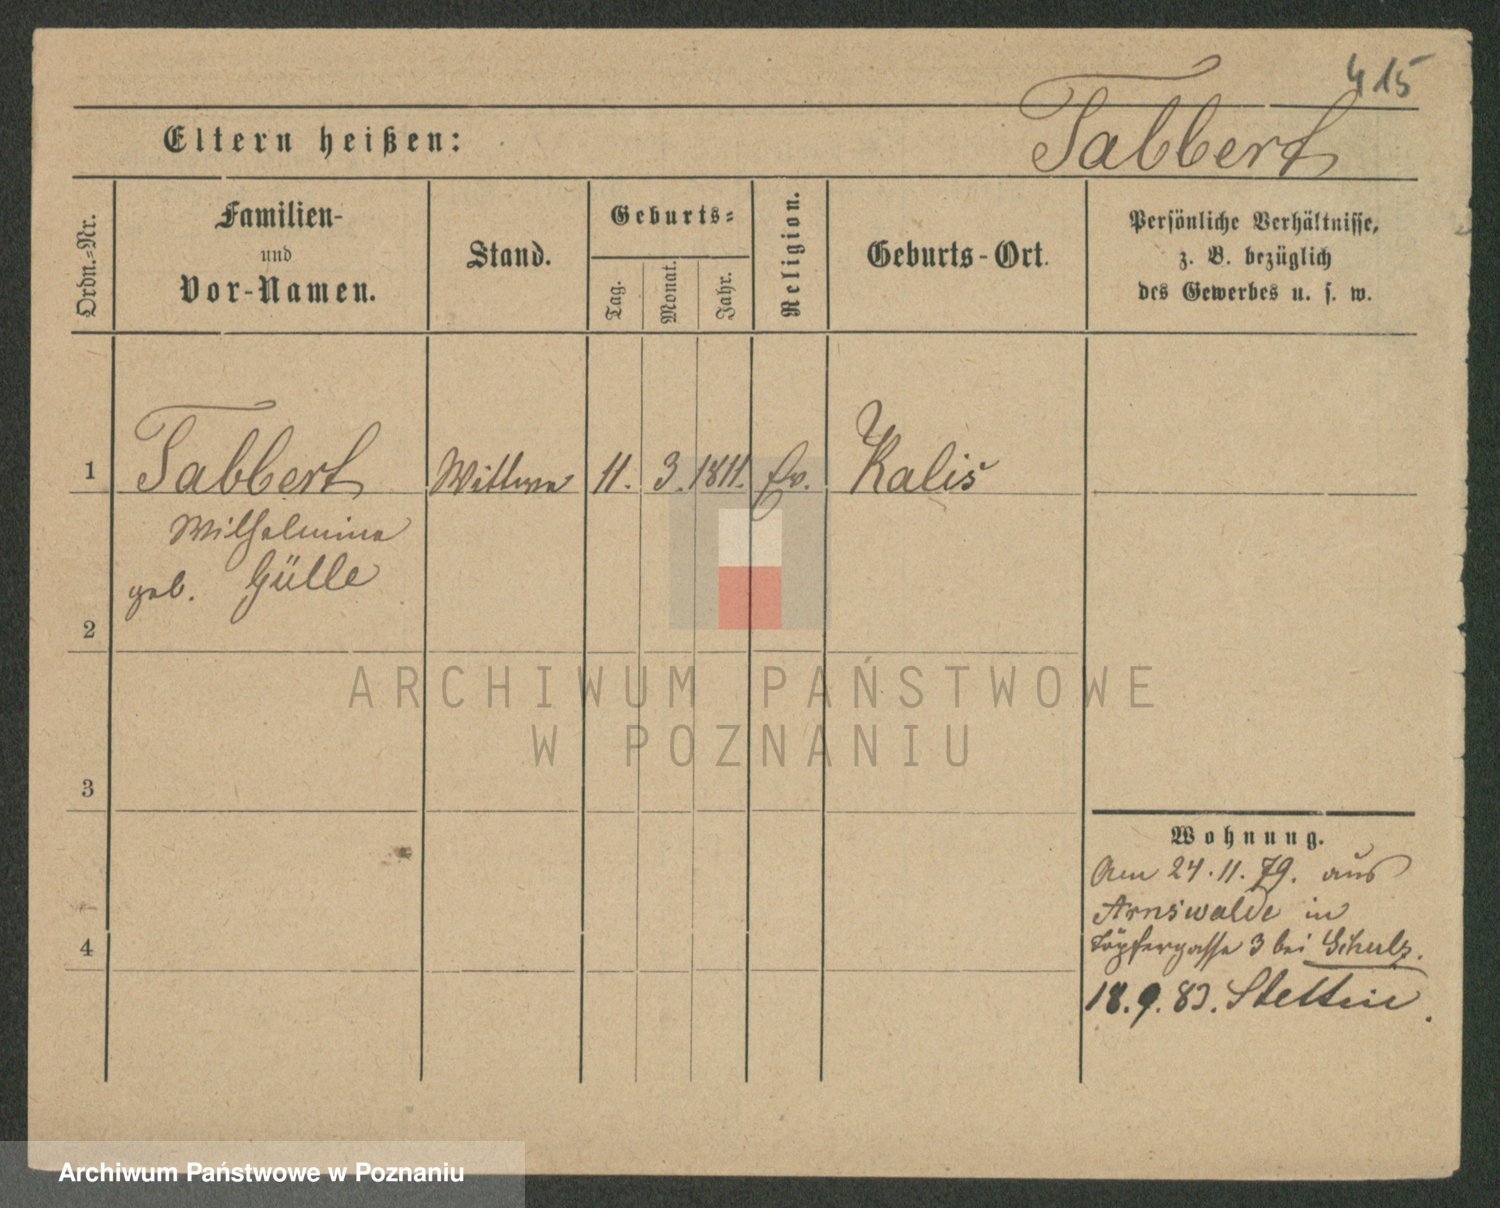 415
Eltern heißen:
Tabbert
Ordn.-Nr.
Familien-
und
Vor-Namen.
Stand.
Geburts-
Tag.
Monat.
Jahr.
Religion.
Geburts-Ort.
Persönliche Verhältnisse,
z. B. bezüglich
des Gewerbes u. s. w.
1 Tabbert Wittwe 11. 3. 1811. Ev. Kalis
Wilhelmine
geb. Gülle
2
3
4
Wohnung.
Am 24.11.79. aus
Arnswalde in
Töpfergasse 3 bei Schulz.
18.9.83. Stettin.
ARCHIWUM PAŃSTWOWE
W POZNANIU
Archiwum Państwowe w Poznaniu